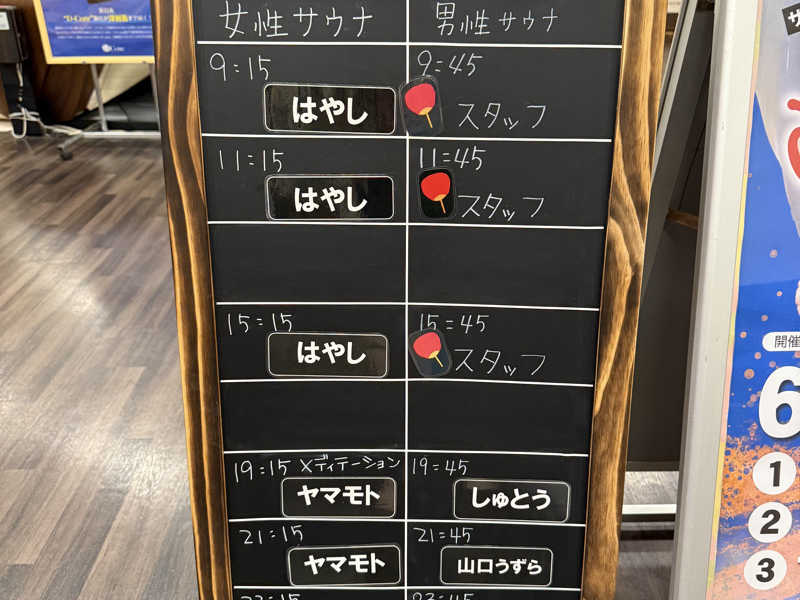 女性サウナ 男性サウナ
9:15 9:45
はやし スタッフ
11:15 11:45
はやし スタッフ
15:15 15:45
はやし スタッフ
19:15 メディテーション 19:45
ヤマモト しゅとう
21:15 21:45
ヤマモト 山口うずら
開催
6
1
2
3